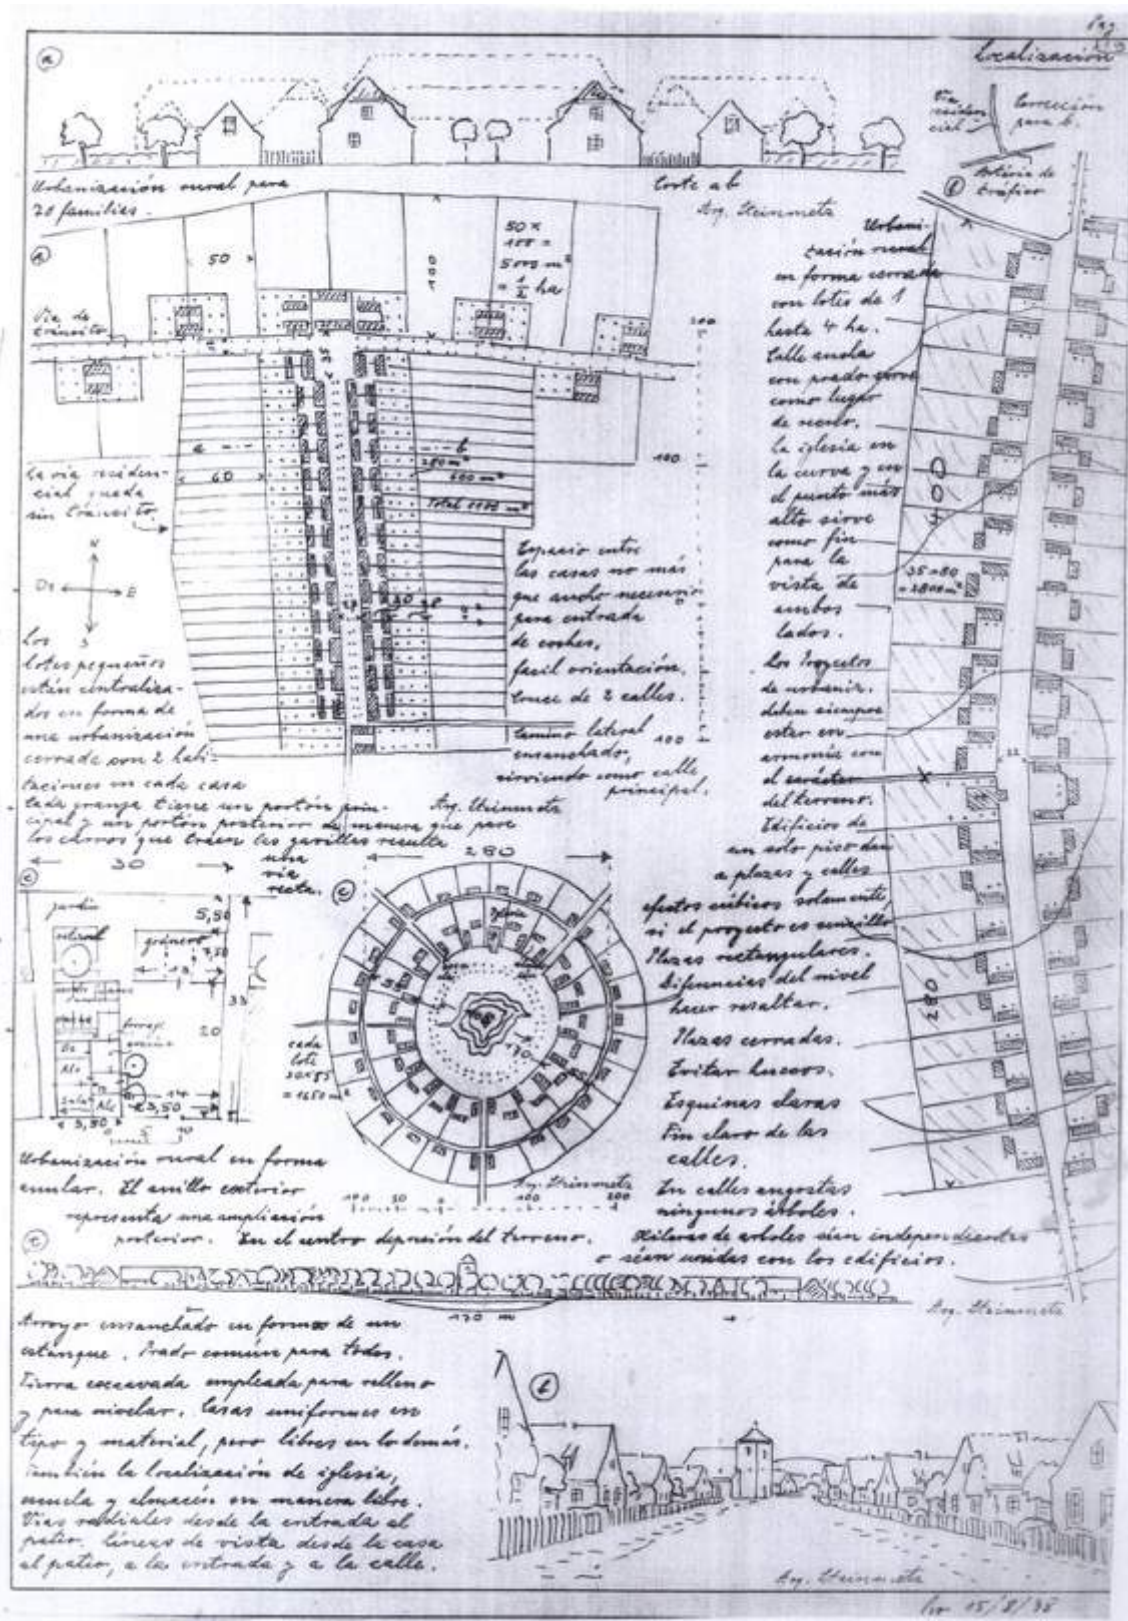 Pag
Localización
a
Vía
residen-
cial
Corrección
para b.
Arteria de
tráfico
Urbanización rural para
20 familias.
Corte ab
Arq. Steinmetz
a
50
100
50 x
100 =
5000 m²
= 1/2 ha
Vía de
tránsito
a
b
60
600 m²
La vía residen-
cial queda
sin tránsito
N
E
S
Los
lotes pequeños
están centraliza-
dos en forma de
una urbanización
cerrada con 2 habi-
taciones en cada casa
Cada granja tiene un portón prin-
cipal y un portón posterior de manera que para
los carros que traen las gavillas resulta
una
vía
recta.
Espacio entre
las casas no más
que ancho necesario
para entrada
de coches,
facil orientación.
Cruce de 2 calles.
Camino lateral
ensanchado,
sirviendo como calle
principal.
Arq. Steinmetz
200
100
100
b
Urbani-
zación rural
en forma cerrada
con lotes de 1
hasta 4 ha.
Calle ancha
con prado sirve
como lugar
de recreo.
La iglesia en
la curva y en
el punto más
alto sirve
como fin
para la
vista de
ambos
lados.
Los Proyectos
de urbaniz.
deben siempre
estar en
armonía con
el carácter
del terreno.
Edificios de
un solo piso dan
a plazas y calles
efectos cúbicos solamente,
si el proyecto es sencillo
Plazas rectangulares.
Diferencias del nivel
hacer resaltar.
Plazas cerradas.
Evitar huecos.
Esquinas claras
Fin claro de las
calles.
En calles angostas
ningunos árboles.
Hileras de arboles sean independientes
o sean unidas con los edificios.
400
35 x 80
= 2800 m²
280
Arq. Steinmetz
c
30
jardín
5,50
granero
7,50
33
20
14
3,50
c
280
Iglesia
170
cada
lote
30 x 55
= 1650 m²
Arq. Steinmetz
100 50 0 100 200
Urbanización rural en forma
anular. El anillo exterior
representa una ampliación
posterior. En el centro depresión del terreno.
c
170 m
Arroyo ensanchado en forma de un
estánque. Prado común para todos.
Tierra excavada empleada para relleno
y para nivelar. Casas uniformes en
tipo y material, pero libres en lo demás.
También la localización de iglesia,
escuela y almacén en manera libre.
Vías radiales desde la entrada al
patio. Líneas de vista desde la casa
al patio, a la entrada y a la calle.
b
Arq. Steinmetz
15/8/